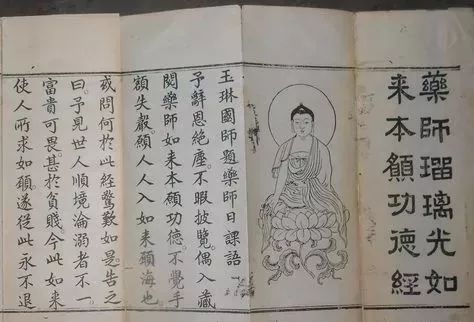 藥師瑠璃光如
来本願功德經
玉琳國師題藥師日課語
予辭恩絶塵不暇披覽偶入藏
閱藥師如来本願功德不覺手
額失聲願人人入如来願海也
或問何於此經驚歎如是告之
曰予見世人順境淪溺者不一
富貴可畏甚於貧賤今此如来
使人所求如願遂從此永不退